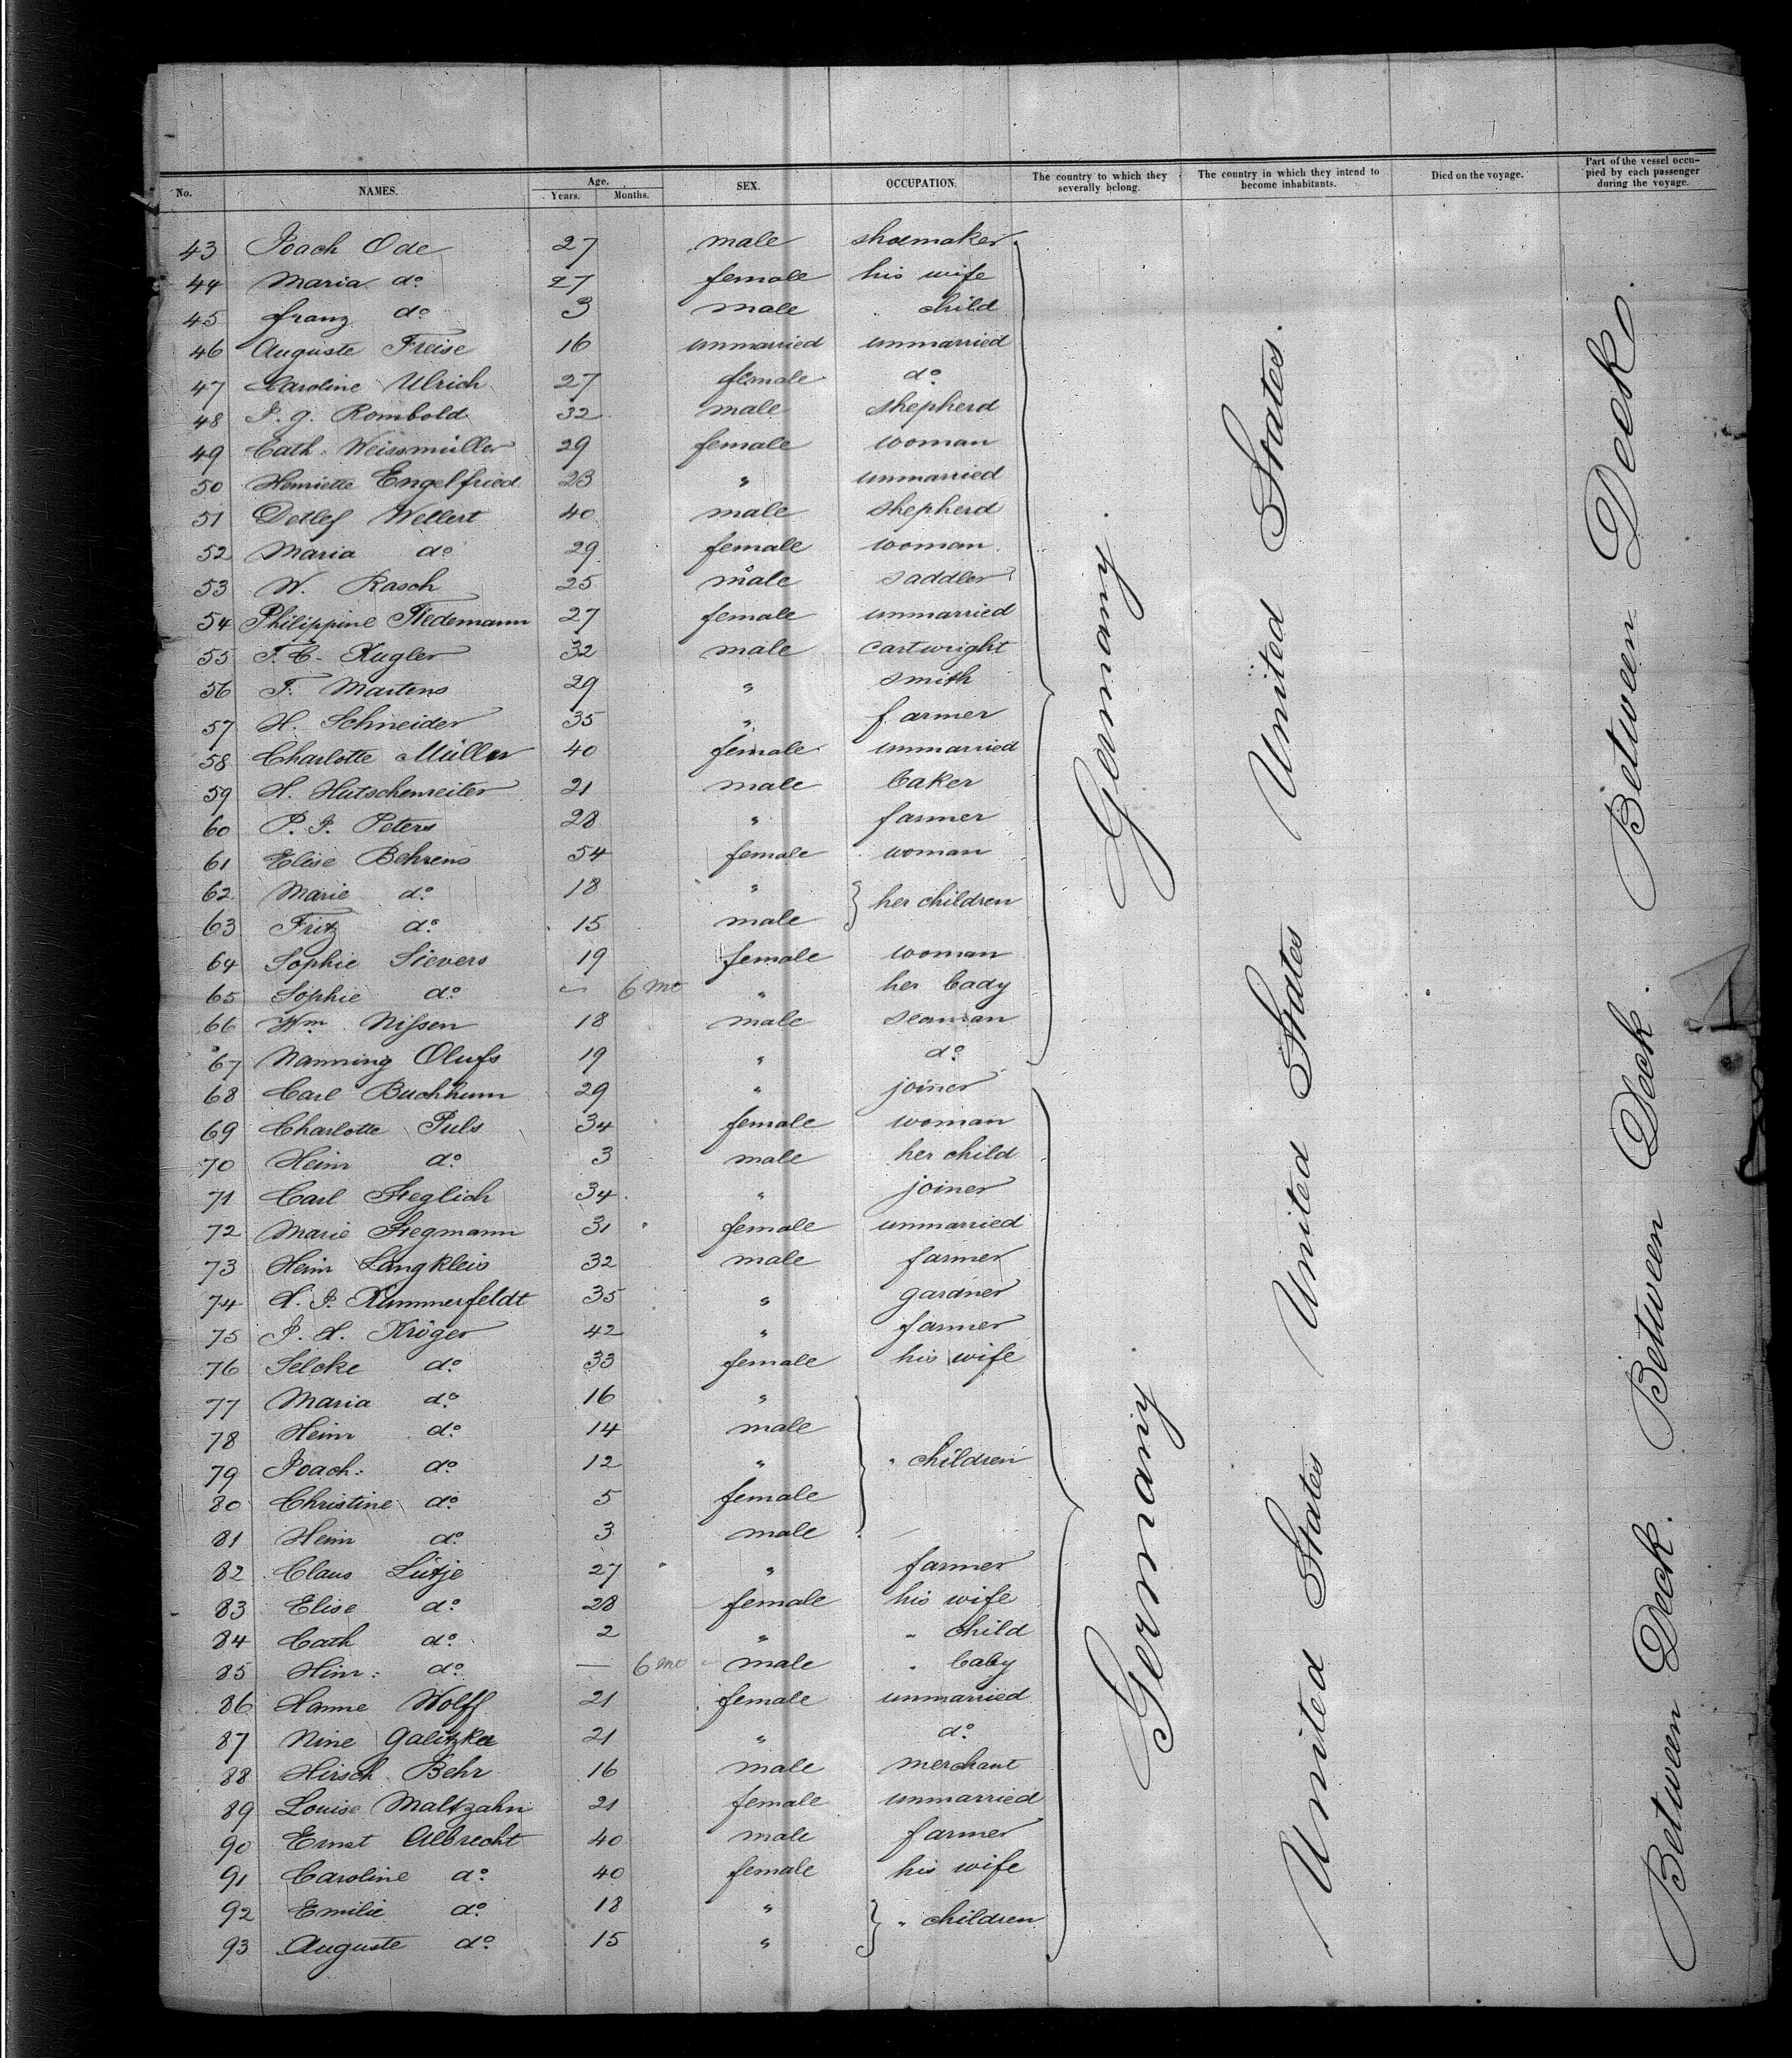 No. NAMES. Age. Years. Months. SEX. OCCUPATION. The country to which they severally belong. The country in which they intend to become inhabitants. Died on the voyage. Part of the vessel occupied by each passenger during the voyage.
43 Joach Ode 27 male shoemaker
44 Maria do 27 female his wife
45 Franz do 3 male child
46 Auguste Freise 16 unmarried unmarried
47 Caroline Ulrich 27 female do
48 J. G. Rombold 32 male shepherd
49 Cath: Weissmüller 29 female woman
50 Henriette Engelfried 23 " unmarried
51 Detlef Wellert 40 male shepherd
52 Maria do 29 female woman
53 W. Rasch 25 male saddler
54 Philippine Tiedemann 27 female unmarried
55 F. C. Kugler 32 male cartwright
56 F. Martens 29 " smith
57 H. Schneider 35 " farmer
58 Charlotte Müller 40 female unmarried
59 H. Hutschenreiter 21 male baker
60 P. J. Peters 28 " farmer
61 Elise Behrens 54 female woman
62 Marie do 18 " her children
63 Fritz do 15 male
64 Sophie Sievers 19 female woman
65 Sophie do — 6 mo " her baby
66 Wm Nissen 18 male seaman
67 Nanning Olufs 19 " do
68 Carl Buchhum 29 " joiner
69 Charlotte Puls 34 female woman
70 Heinr do 3 male her child
71 Carl Steglich 34 " joiner
72 Marie Stegmann 31 female unmarried
73 Heinr Langkleis 32 male farmer
74 H. J. Kummerfeldt 35 " gardner
75 J. H. Kröger 42 " farmer
76 Selcke do 33 female his wife
77 Maria do 16 "
78 Heinr do 14 male
79 Joach: do 12 " " children
80 Christine do 5 female
81 Heinr do 3 male
82 Claus Lütje 27 " farmer
83 Elise do 28 female his wife
84 Cath do 2 " " child
85 Hinr: do — 6 mo male " baby
86 Hanne Wolff 21 female unmarried
87 Nine Galitzka 21 " do
88 Hirsch Behr 16 male merchant
89 Louise Maltzahn 21 female unmarried
90 Ernst Albrecht 40 male farmer
91 Caroline do 40 female his wife
92 Emilie do 18 " " children
93 Auguste do 15 "
Germany.
Germany.
United States.
United States
United States
Between Deck.
Between Deck.
Between Deck.